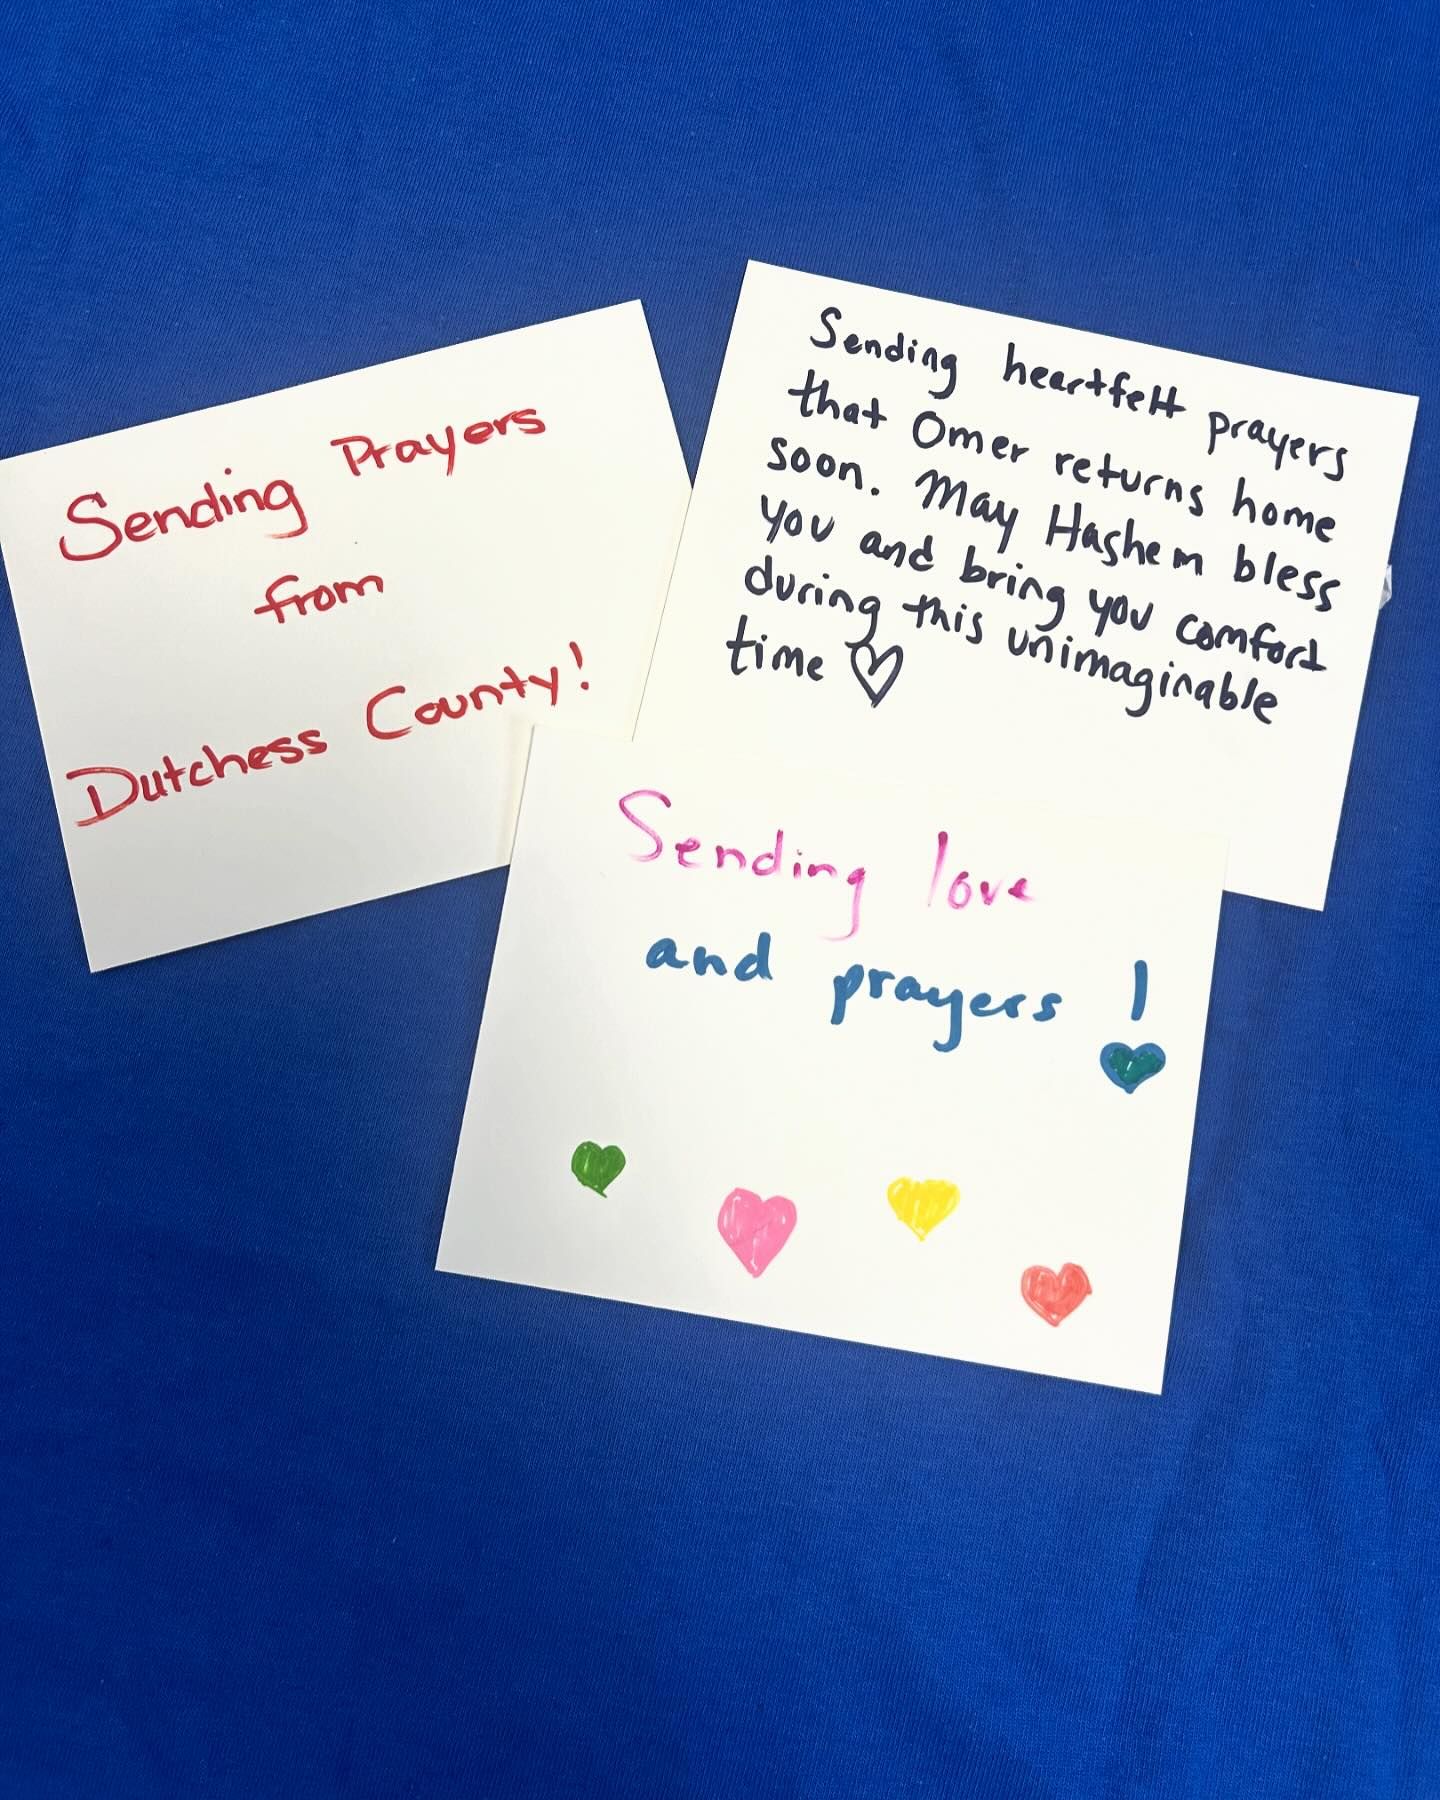 Sending Prayers
from
Dutchess County!
Sending heartfelt prayers
that Omer returns home
soon. May Hashem bless
you and bring you comfort
during this unimaginable
time
Sending love
and prayers !